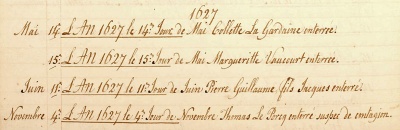 1627
Mai 14: L'AN 1627 le 14: Jour de Mai Collette La Gardaine enterrée.
15: L'AN 1627 le 15: Jour de Mai Margueritte Vaucourt enterrée.
Juin 11: L'AN 1627 le 11: Jour de Juin Pierre Guillaume fils Jacques enterré.
Novembre 4: L'AN 1627 le 4: Jour de Novembre Thomas Le Porcq enterré suspec de contagion.